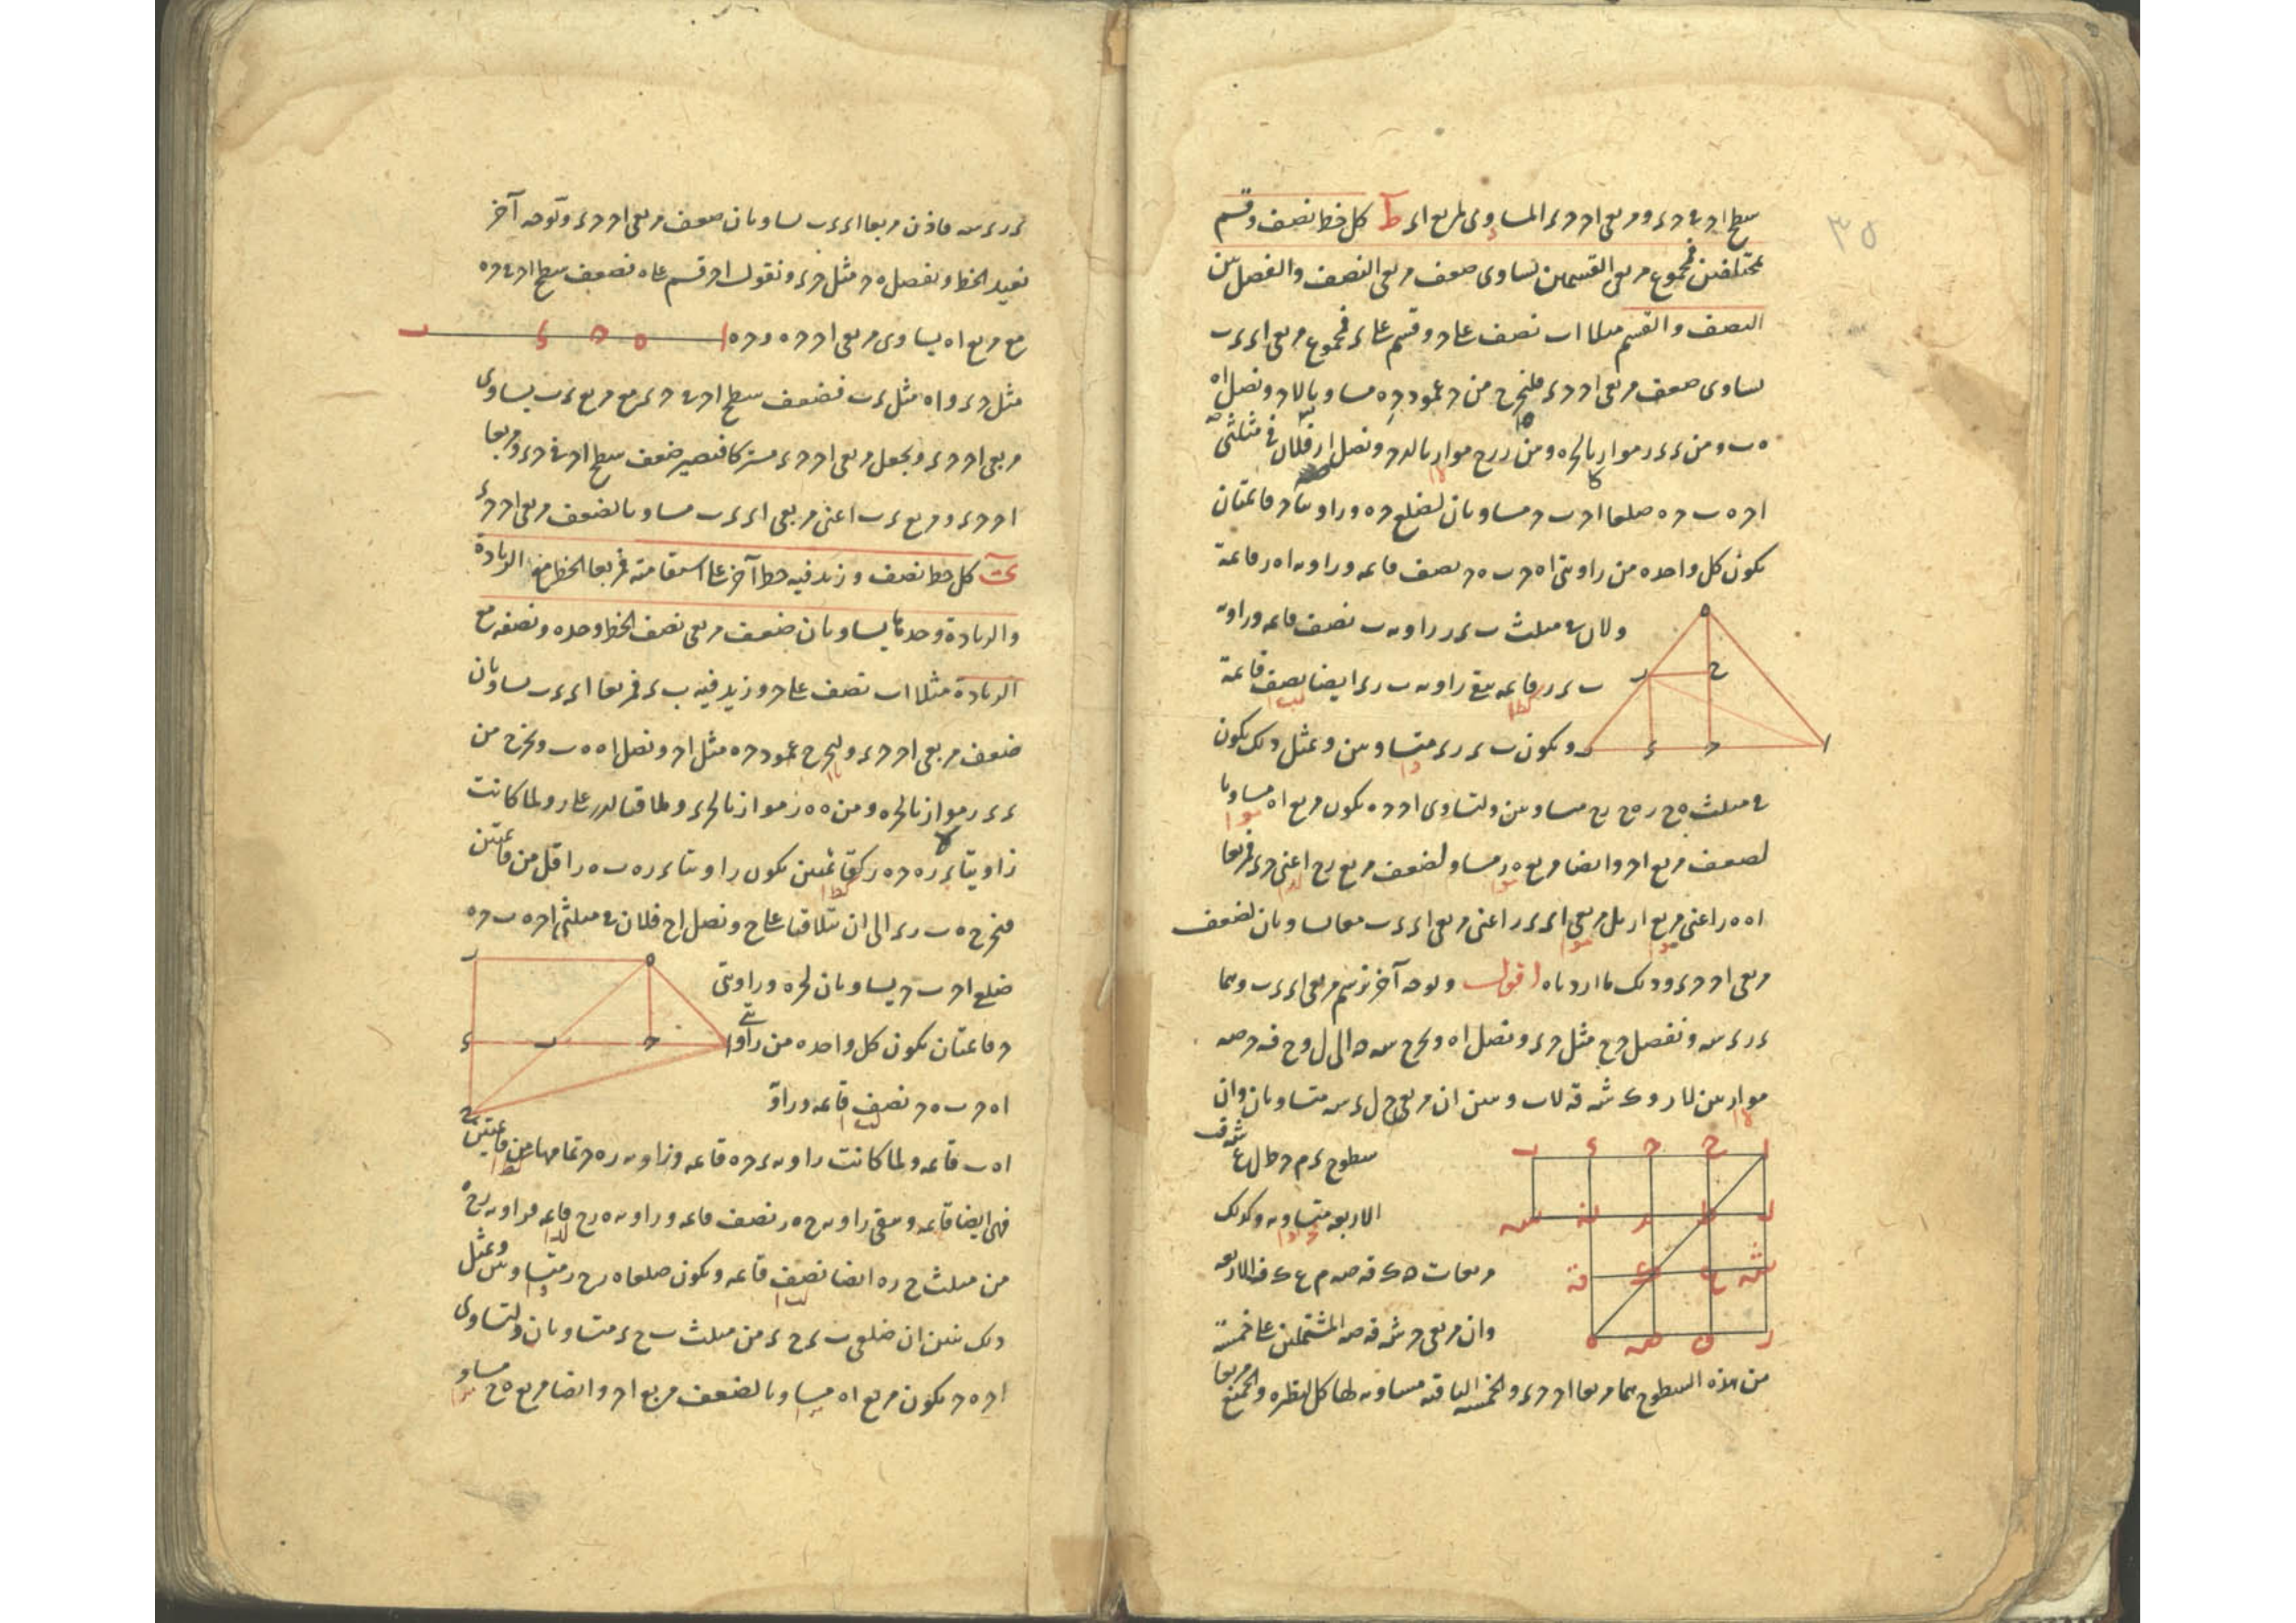 سطح اح في ح ء ومربعي اح ح ء المساوى لمربع اء ط كل خط نصف وقسم
بمختلفين فمجموع مربعي القسمين يساوى ضعف مربعي النصف والفضل بين
النصف والقسم مثلا اب نصف على ح وقسم على ء فمجموع مربعي اء ء ب
يساوى ضعف مربعي اح ح ء فليخرج من ح عمود ح ه مساويا لاح ونصل اه
ه ب ومن ء ء ر موازيا لحه ومن ر ر ح موازيا لء ح ونصل ار فلان في مثلثي
اح ه ب ح ه ضلعا اح ب ح مساويان لضلع ح ه وزاويتا ح قائمتان
يكون كل واحدة من زاويتي اه ح ب ه ح نصف قائمة وزاوية اه ر قائمة
ولان في مثلث ب ء ر زاوية ب نصف قائمة وزاوية
ب ء ر قائمة يبقى زاوية ب ر ء ايضا نصف قائمة
ويكون ب ء ر ء متساويين وبمثل ذلك يكون
في مثلث ه ح ر ه ح ر ح متساويين ولتساوى اح ح ه يكون مربع اه مساويا
لضعف مربع اح وايضا مربع ه ر مساو لضعف مربع ر ح اعني ح ء فمربعا
اه ه ر اعني مربع ار بل مربعي اء ء ر اعني مربعي اء ء ب معا يساويان لضعف
مربعي اح ح ء وذلك ما اردناه اقول وبوجه آخر نرسم مربعي اء ء ب وهما
ء ر ء سه ونفصل ح ح مثل ح ء ونصل اه ونخرج سه الى ل و ح ق ح صه
موازيين لار و ك شه قه لاب وتبين ان مربعي ح ل ء سه متساويان وان
سطوح ء م ح ط ل ع شه ق
الاربعة متساوية وكذلك
مربعات ه ك قه صه م ع ك ف الاربعة
وان مربعي ح شه قه صه المشتملين على خمسة
من هذه السطوح هما مربعا اح ح ء والخمسة الباقية مساوية لها كل لنظيره والجميع مربعا
ء ر ء سه فاذن مربعا اء ء ب يساويان ضعف مربعي اح ح ء وبوجه آخر
نعيد الخط ونفصل ه ح مثل ح ء ونقول اح قسم على ه فضعف سطح اح في ح ه
مع مربع اه يساوى مربعي اح ح ه و ح ه
مثل ح ء و اه مثل ء ب فضعف سطح اح في ح ء مع مربع ء ب يساوى
مربعي اح ح ء ونجعل مربعي اح ح ء مشتركا فيصير ضعف سطح اح في ح ء ومربعا
اح ح ء ومربع ء ب اعني مربعي اء ء ب مساويا لضعف مربعي اح ح ء
كل خط نصف وزيد فيه خط آخر على استقامته فمربعا الخط مع الزيادة
والزيادة وحدها يساويان ضعف مربعي نصف الخط وحده ونصفه مع
الزيادة مثلا اب نصف على ح وزيد فيه ب ء فمربعا اء ء ب يساويان
ضعف مربعي اح ح ء وليخرج عمود ح ه مثل اح ونصل اه ه ب ونخرج من
ء ء ر موازيا لحه ومن ه ه ر موازيا لحء وليلاقيا لء ر على ر ولما كانت
زاويتا ء ر ه ح ه ر كقائمتين يكون زاويتا ء ر ه ب ه ر اقل من قائمتين
فنخرج ه ب ر ء الى ان يتلاقيا على ح ونصل اح فلان في مثلثي اح ه ب ح ه
ضلع اح ب ح يساويان لحه وزاويتي
ح قائمتان يكون كل واحدة من زاويتي
اه ح ب ه ح نصف قائمة وزاوية
اه ب قائمة ولما كانت زاوية ء ح ه قائمة وزاوية ر ه ح تمامها من قائمتين
فهي ايضا قائمة ويبقى زاوية ح ه ر نصف قائمة وزاوية ه ر ح قائمة فزاوية ر ح ه
من مثلث ح ر ه ايضا نصف قائمة ويكون ضلعا ه ر ح ر متساويين وبمثل
ذلك تبين ان ضلعي ب ء ح ء من مثلث ب ح ء متساويان ولتساوى
اح ه ح يكون مربع اه مساويا لضعف مربع اح وايضا مربع ه ح مساو